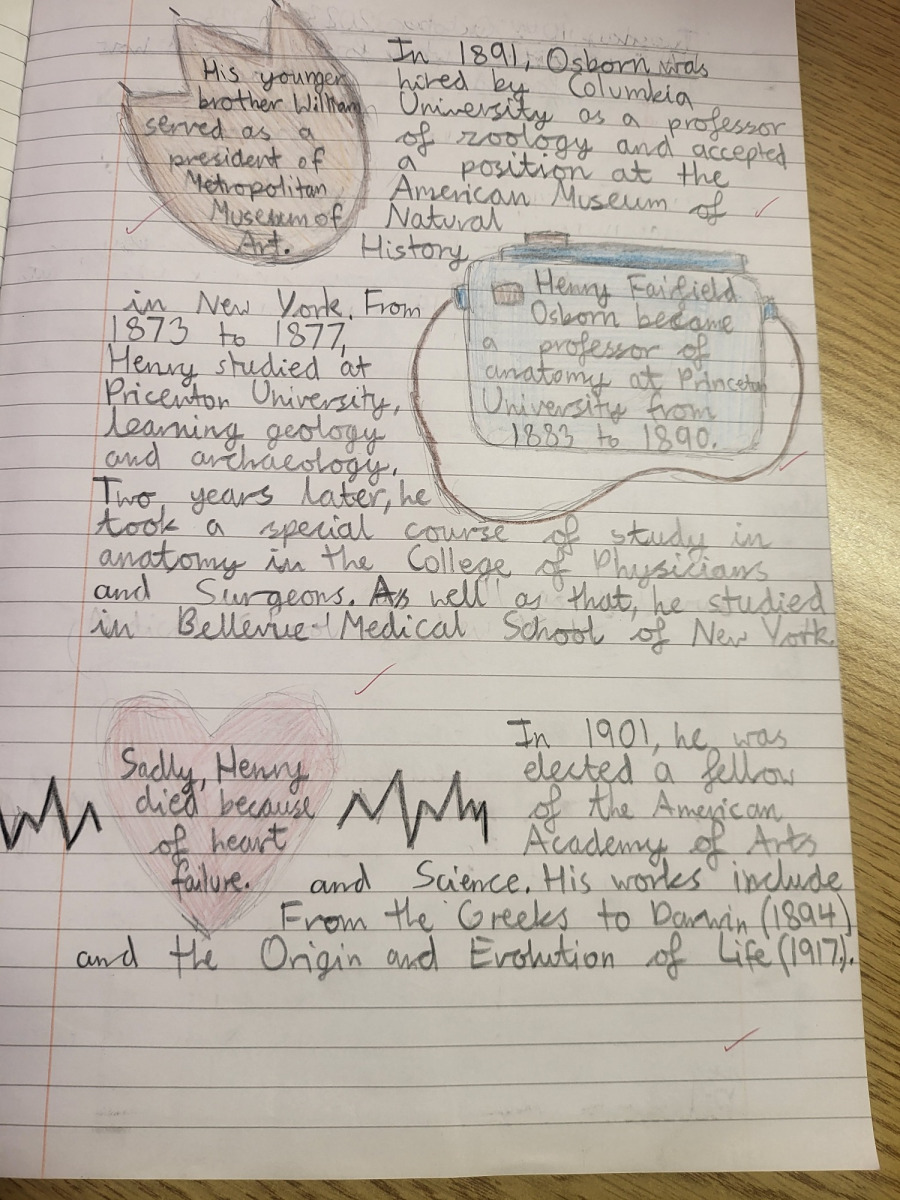 His younger
brother William
served as a
president of
Metropolitan
Museum of
Art.
In 1891, Osborn was
hired by Columbia
University as a professor
of zoology and accepted
a position at the
American Museum of
Natural
History
Henry Fairfield
Osborn became
a professor of
anatomy at Princeton
University from
1883 to 1890.
in New York. From
1873 to 1877,
Henry studied at
Pricenton University,
learning geology
and archaeology.
Two years later, he
took a special course of study in
anatomy in the College of Physicians
and Surgeons. As well as that, he studied
in Bellevue Medical School of New York.
Sadly, Henry
died because
of heart
failure.
In 1901, he was
elected a fellow
of the American
Academy of Arts
and Science. His works include
From the Greeks to Darwin (1894)
and the Origin and Evolution of Life (1917).